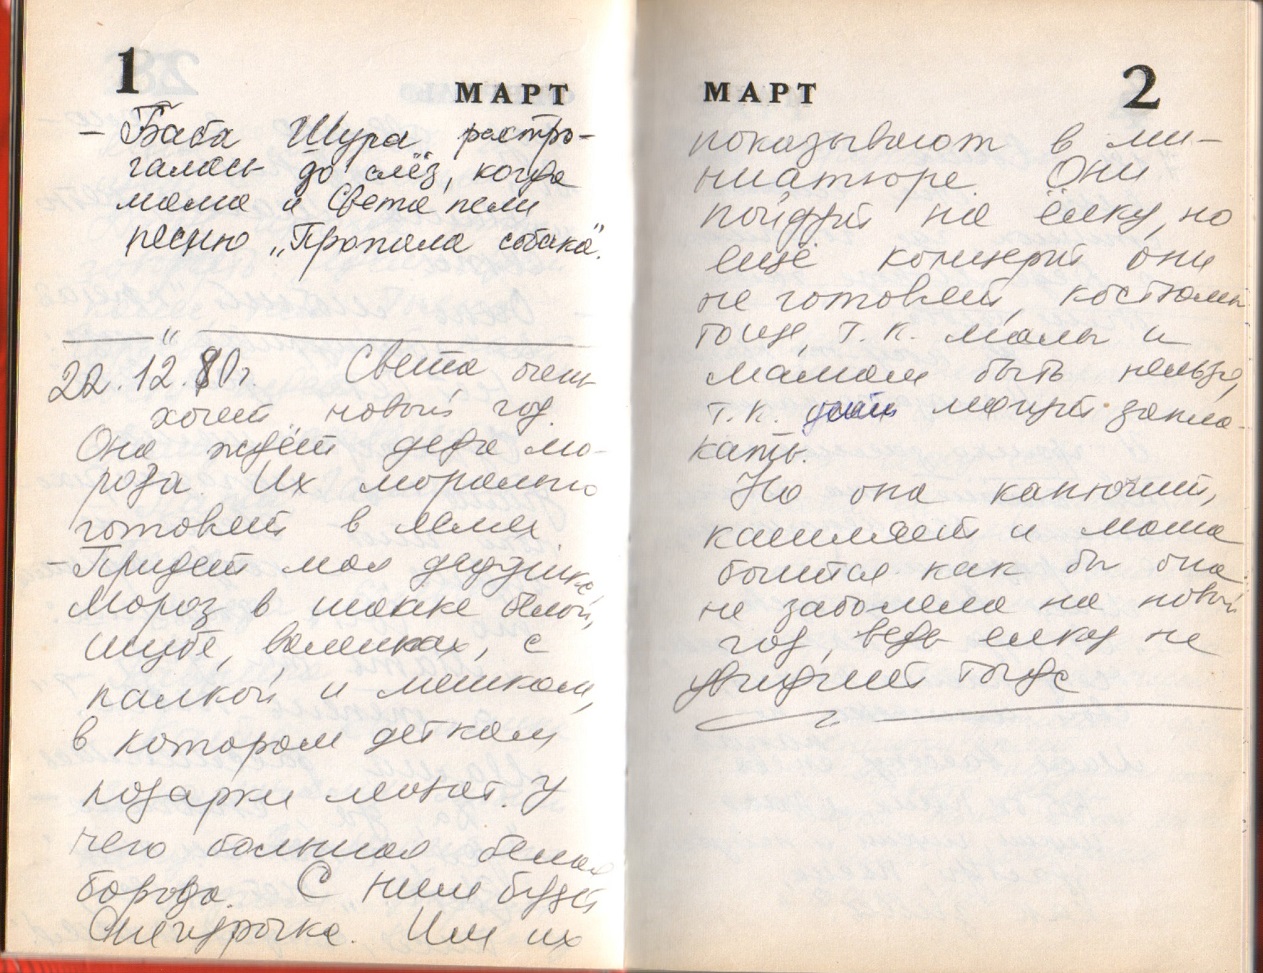 1
МАРТ
– Баба Шура растро-
галась до слёз, когда
мама и Света пели
песню „Пропала собака“.
22.12.80г. Света очень
хочет новый год.
Она ждёт деда мо-
роза. Их морально
готовят в яслях
– Придёт моя дедушка
Мороз в шапке белой,
шубе, валенках, с
палкой и мешком,
в котором деткам
подарки лежат. У
него большая белая
борода. С ним будет
Снегурочка. Им их
МАРТ
2
показывают в ми-
ниатюре. Они
пойдут на ёлку, но
ещё концерт они
не готовят, костюмы
тоже, т.к. папы и
мамам быть нельзя,
т.к. дети могут запла-
кать.
Но она канючит,
кашляет и мама
боится как бы она
не заболела на новый
год, ведь ёлку не
увидит тогда